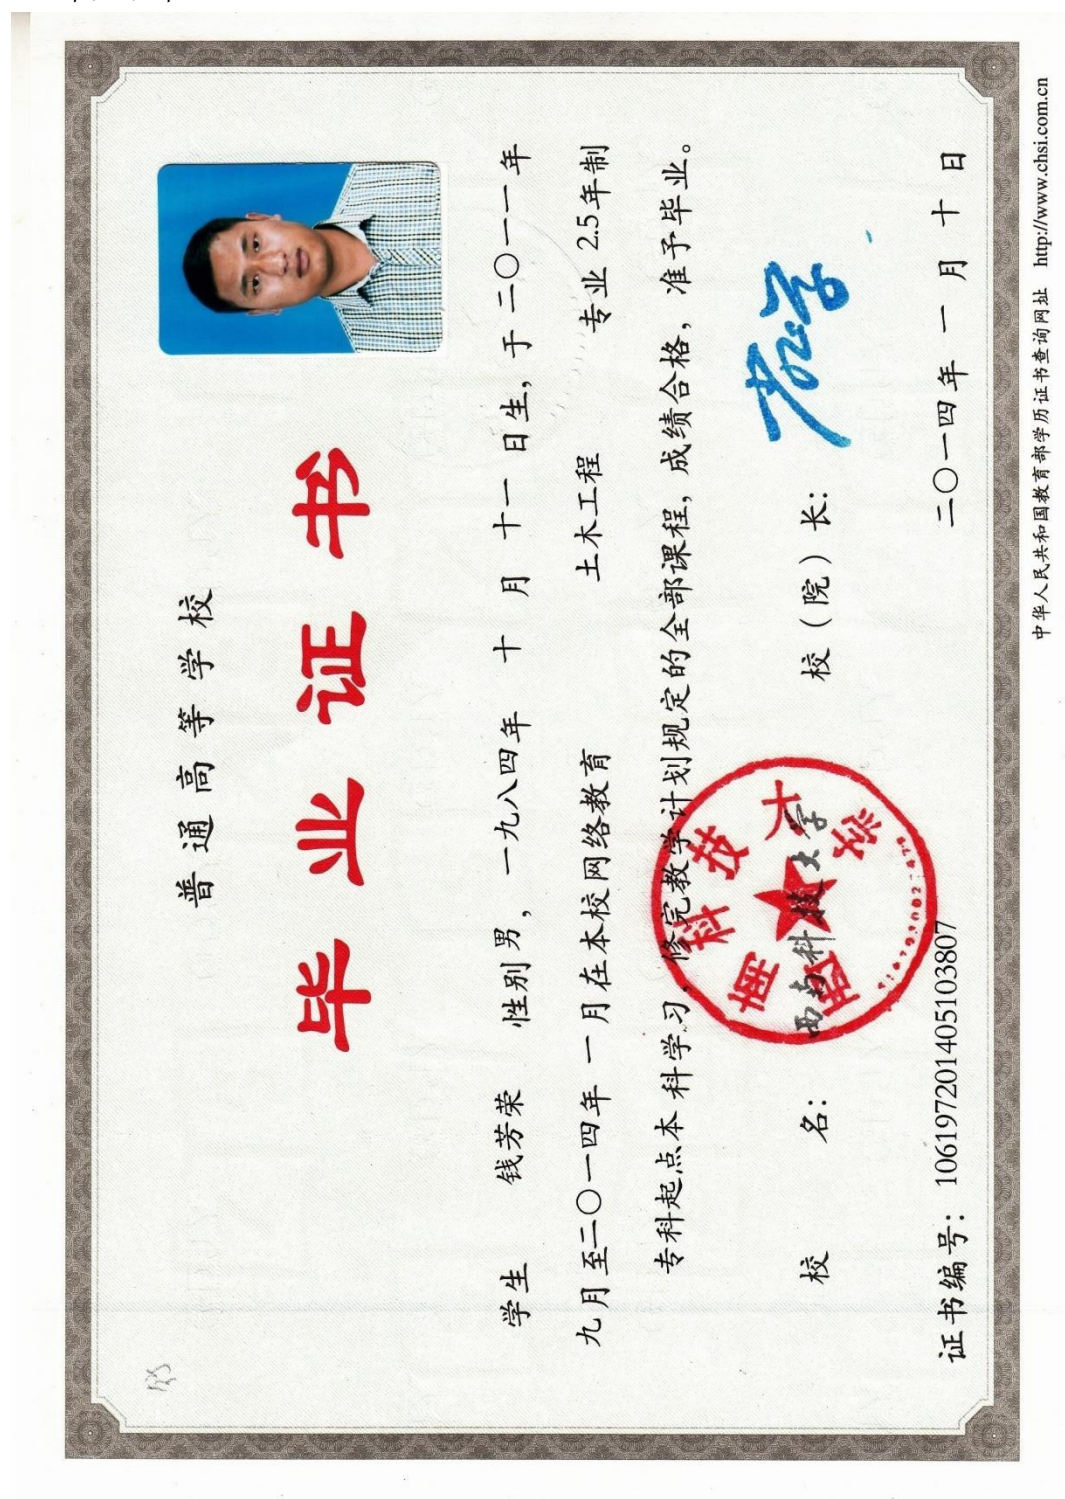 普通高等学校
毕业证书
学生 钱芳荣 性别男，一九八四年 十 月 十一 日生，于二〇一一年
九月至二〇一四年 一 月在本校网络教育 土木工程 专业 2.5年制
专科起点本 科学习，修完教学计划规定的全部课程，成绩合格，准予毕业。
校 名： 西南科技大学 校（院）长：
西南科技大学
证书编号： 106197201405103807 二〇一四年 一 月 十 日
中华人民共和国教育部学历证书查询网址 http://www.chsi.com.cn